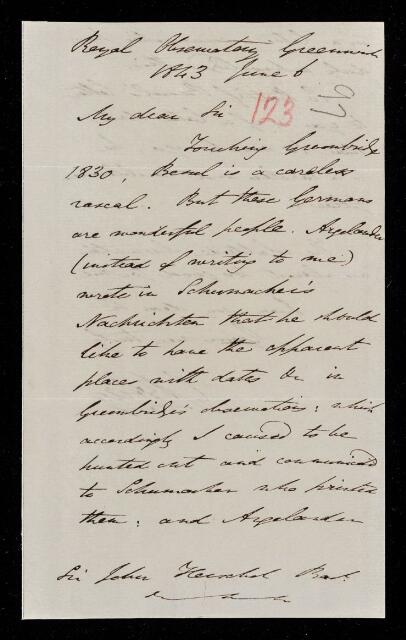 Royal Observatory Greenwich
1843 June 6
My dear Sir
123
97
Touching Groombridge
1830, Bessel is a careless
rascal. But these Germans
are wonderful people. Argelander
(instead of writing to me)
wrote in Schumacher's
Nachrichten that he should
like to have the apparent
places with dates &c in
Groombridge's observations: which
accordingly I caused to be
hunted out and communicated
to Schumacher who printed
them: and Argelander
Sir John Herschel Bart.